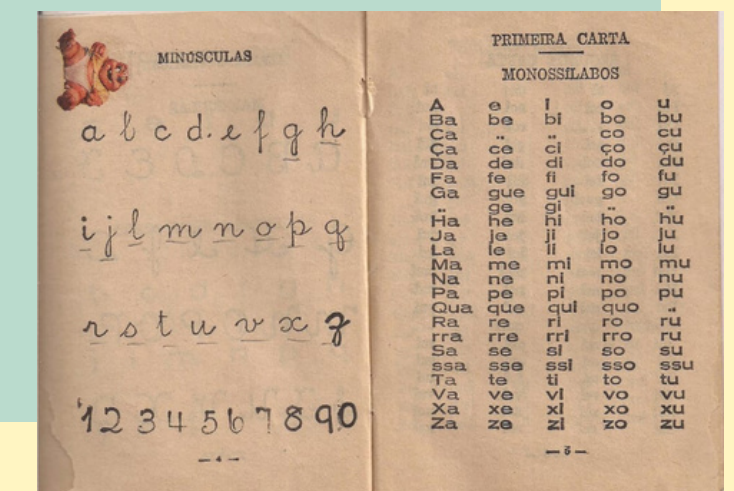 MINÚSCULAS
a b c d e f g h
i j l m n o p q
r s t u v x z
1 2 3 4 5 6 7 8 9 0
— 4 —
PRIMEIRA CARTA
MONOSSÍLABOS
A e i o u
Ba be bi bo bu
Ca .. .. co cu
Ça ce ci ço çu
Da de di do du
Fa fe fi fo fu
Ga gue gui go gu
.. ge gi .. ..
Ha he hi ho hu
Ja je ji jo ju
La le li lo lu
Ma me mi mo mu
Na ne ni no nu
Pa pe pi po pu
Qua que qui quo ..
Ra re ri ro ru
rra rre rri rro ru
Sa se si so su
ssa sse ssi sso ssu
Ta te ti to tu
Va ve vi vo vu
Xa xe xi xo xu
Za ze zi zo zu
— 5 —